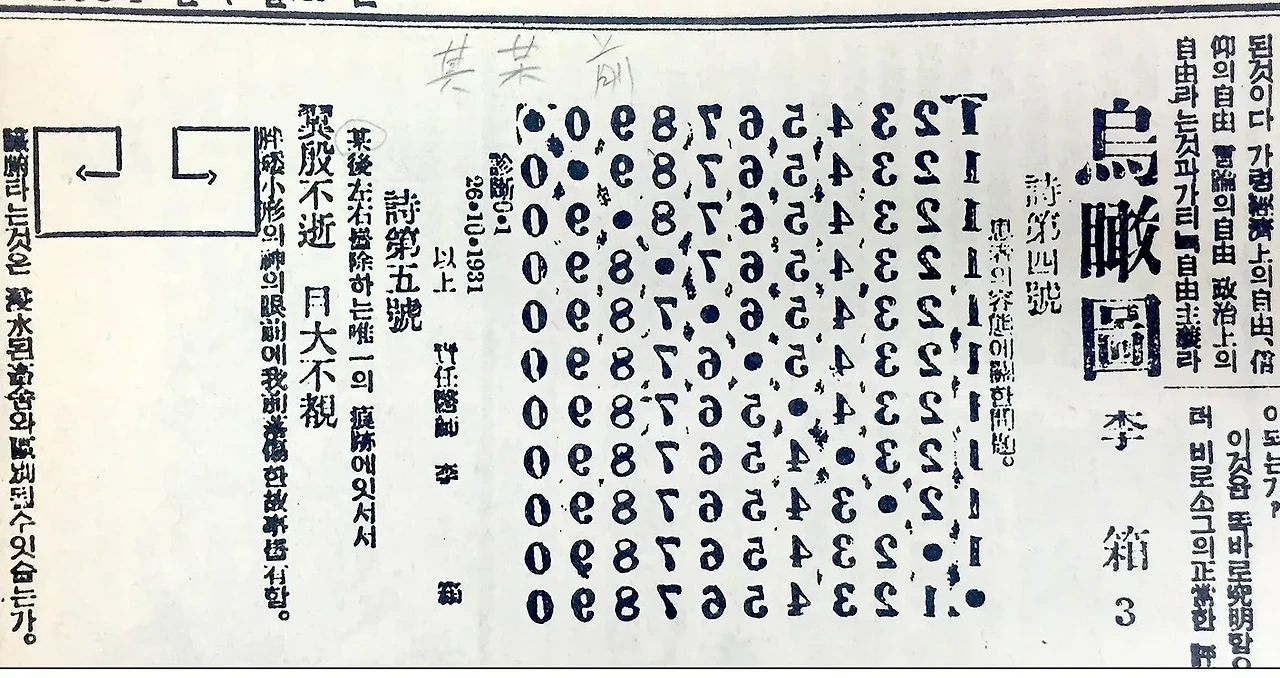 된것이다 가령經濟上의自由、信
仰의自由 言論의自由 政治上의
自由라는것과가티 自由主義라
이되는가?
이것을 똑바로究明함。
러 비로소그의正當한 評
烏瞰圖 李 箱 3
詩第四號
患者의容態에關한問題。
• 0 9 8 7 6 5 4 3 2 1
0 • 9 8 7 6 5 4 3 2 1
0 9 • 8 7 6 5 4 3 2 1
0 9 8 • 7 6 5 4 3 2 1
0 9 8 7 • 6 5 4 3 2 1
0 9 8 7 6 • 5 4 3 2 1
0 9 8 7 6 5 • 4 3 2 1
0 9 8 7 6 5 4 • 3 2 1
0 9 8 7 6 5 4 3 • 2 1
0 9 8 7 6 5 4 3 2 • 1
0 9 8 7 6 5 4 3 2 1 •
診斷0•1
26•10•1931
以上 責任醫師 李 箱
詩第五號
其 某 前
某後左右를除하는唯一의 痕跡에잇서서
翼殷不逝 目大不覩
胖矮小形의神의眼前에我前落傷한故事를有함。
臟腑타는것은 浸水된畜舍와區別될수잇슬는가。